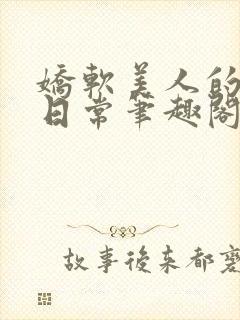 嬌軟美人的
日常筆趣閣
故事後来都